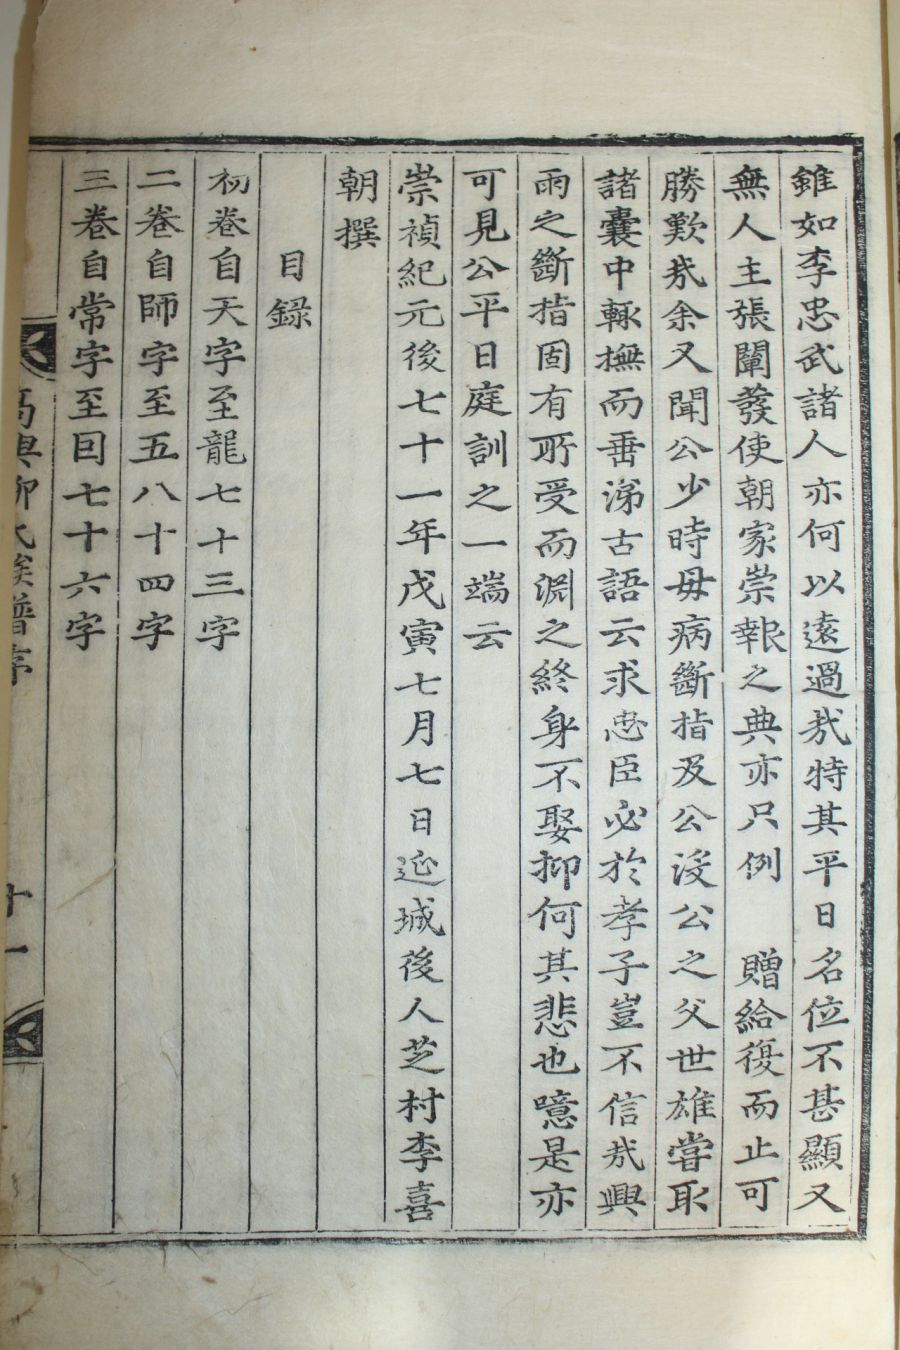 雖如李忠武諸人亦何以遠過㢤特其平日名位不甚顯又
無人主張闡發使朝家崇報之典亦只例　贈給復而止可
勝歎㢤余又聞公少時毋病斷指及公沒公之父世雄嘗取
諸囊中輒撫而垂涕古語云求忠臣必於孝子豈不信㢤興
雨之斷指固有所受而淵之終身不娶抑何其悲也噫是亦
可見公平日庭訓之一端云
崇禎紀元後七十一年戊寅七月七日延城後人芝村李喜
朝撰
目録
初卷自天字至龍七十三字
二卷自師字至五八十四字
三卷自常字至囙七十六字
高興柳氏族譜序
十一